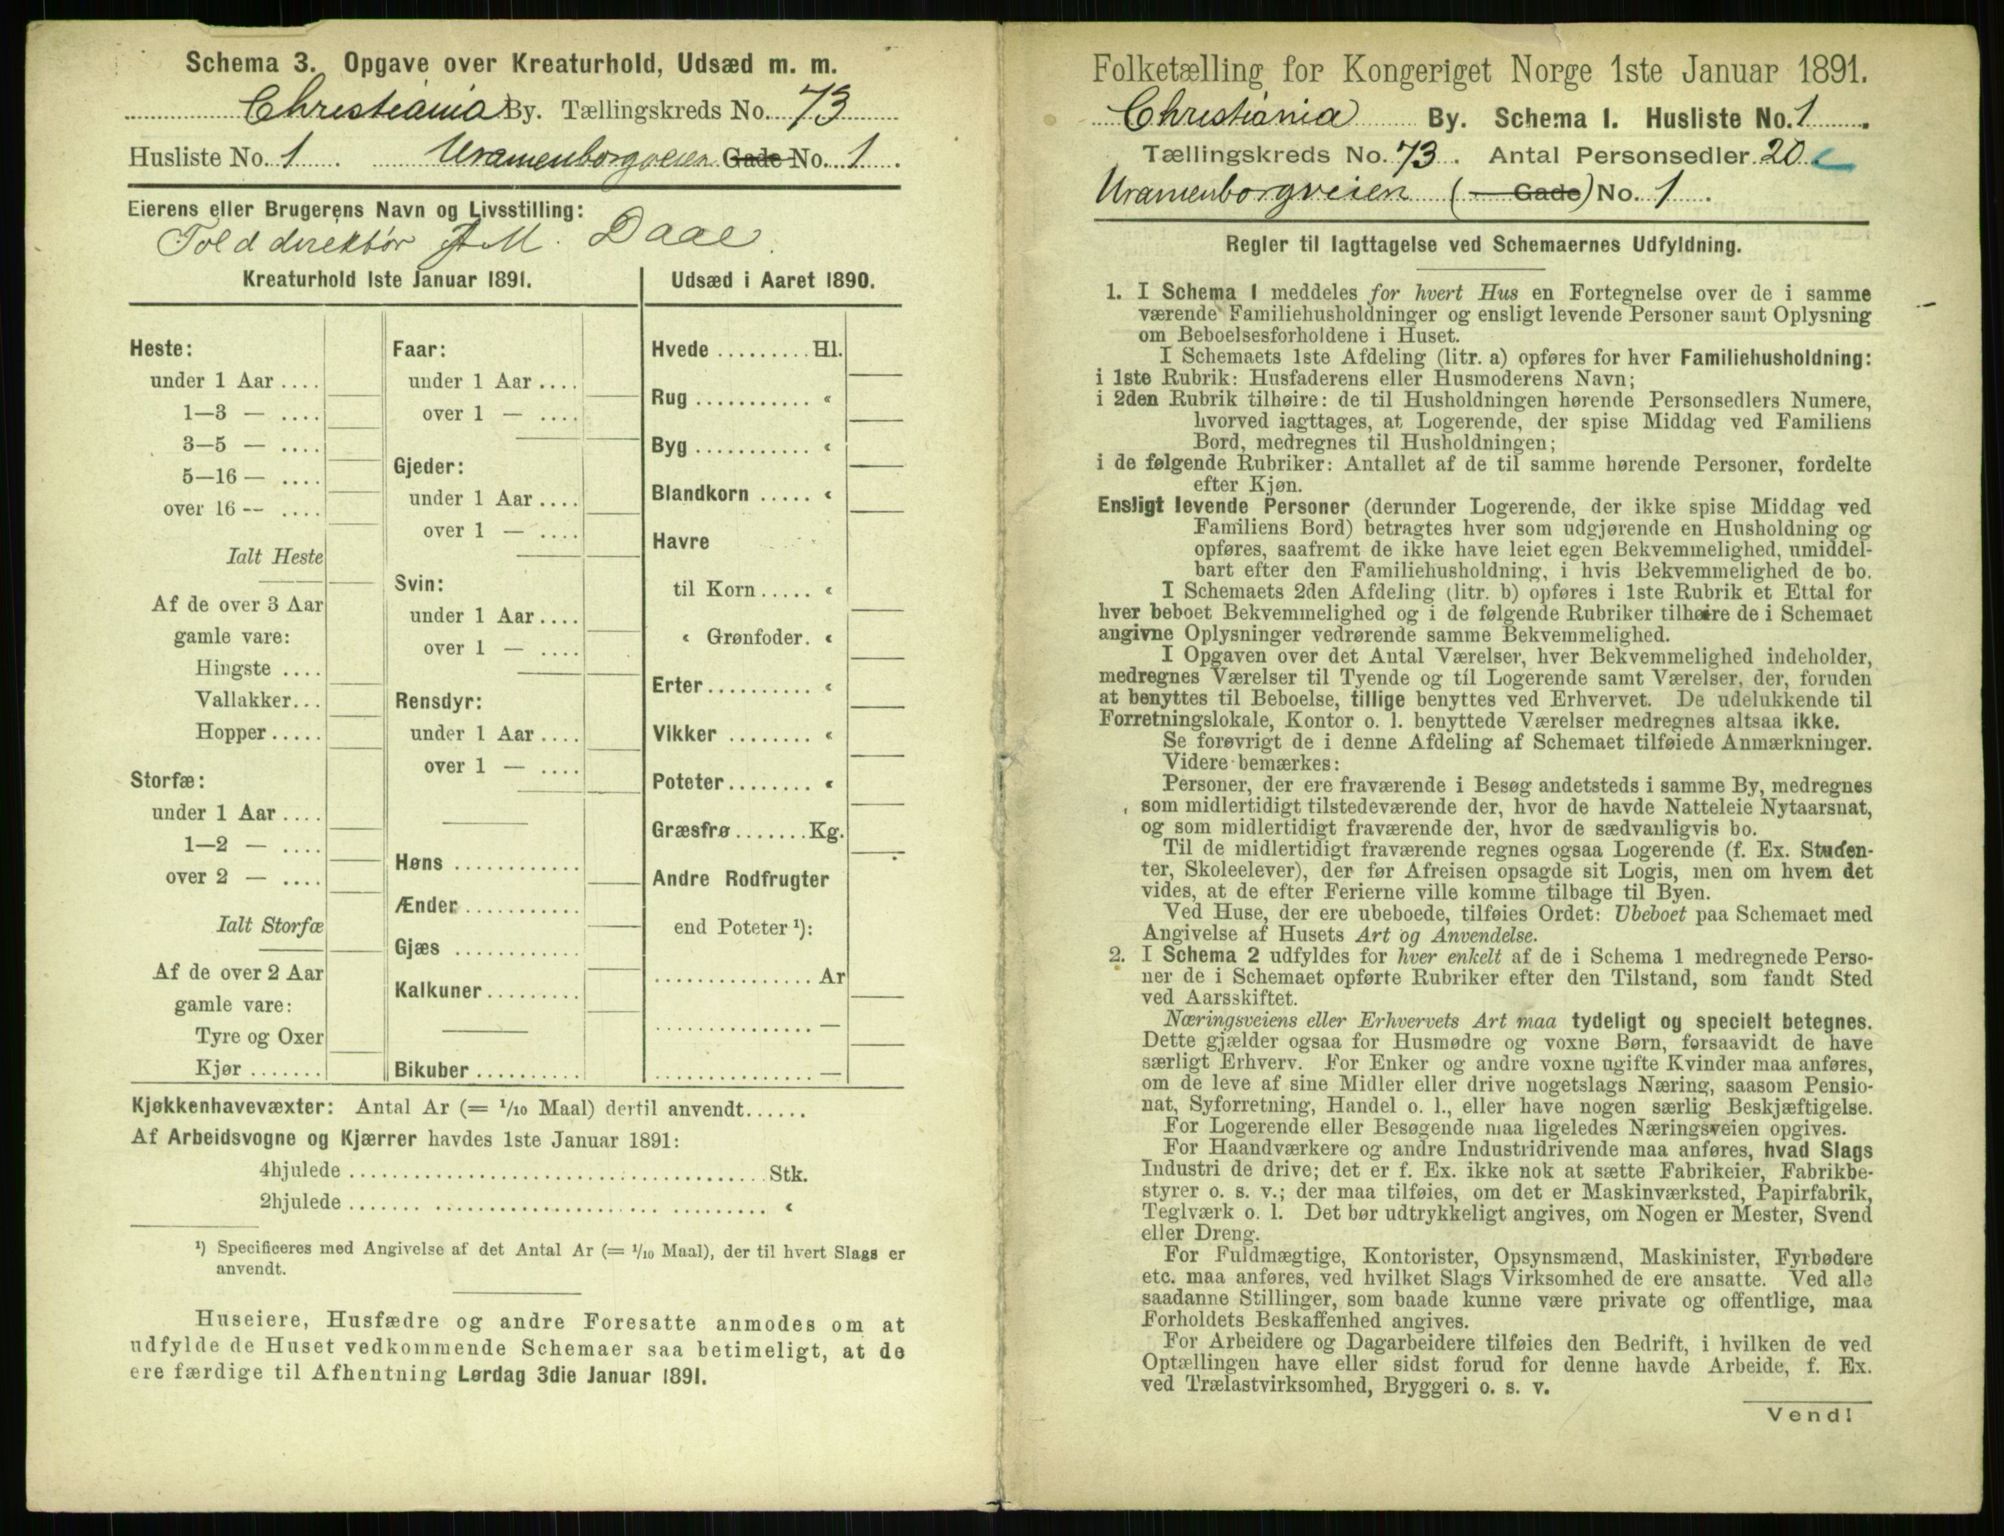 Schema 3. Opgave over Kreaturhold, Udsæd m. m.
Christiania By. Tællingskreds No. 73
Husliste No. 1 Uranienborgveien Gade No. 1.
Eierens eller Brugerens Navn og Livsstilling:
Tolddirektør A M. Daae.
Kreaturhold 1ste Januar 1891.
Heste:
under 1 Aar ....
1—3 — ....
3—5 — ....
5—16 — ....
over 16 -- ....
Ialt Heste
Af de over 3 Aar
gamle vare:
Hingste ....
Vallakker...
Hopper.....
Storfæ:
under 1 Aar ....
1—2 — ....
over 2 — ....
Ialt Storfæ
Af de over 2 Aar
gamle vare:
Tyre og Oxer
Kjør .......
Faar:
under 1 Aar ....
over 1 — ....
Gjeder:
under 1 Aar ....
over 1 — ....
Svin:
under 1 Aar ....
over 1 — ....
Rensdyr:
under 1 Aar ....
over 1 — ....
Høns ...........
Ænder...........
Gjæs ...........
Kalkuner.........
Bikuber..........
Udsæd i Aaret 1890.
Hvede .........Hl.
Rug ........... «
Byg ........... «
Blandkorn ..... «
Havre
til Korn..... «
« Grønfoder. «
Erter.......... «
Vikker ........ «
Poteter........ «
Græsfrø.......Kg.
Andre Rodfrugter
end Poteter ¹):
............... Ar
............... —
............... —
Kjøkkenhavevæxter: Antal Ar (= 1/10 Maal) dertil anvendt......
Af Arbeidsvogne og Kjærrer havdes 1ste Januar 1891:
4hjulede ...................................... Stk.
2hjulede ...................................... «
¹) Specificeres med Angivelse af det Antal Ar (= 1/10 Maal), der til hvert Slags er
anvendt.
Huseiere, Husfædre og andre Foresatte anmodes om at
udfylde de Huset vedkommende Schemaer saa betimeligt, at de
ere færdige til Afhentning Lørdag 3die Januar 1891.
Folketælling for Kongeriget Norge 1ste Januar 1891.
Christiania By. Schema 1. Husliste No. 1.
Tællingskreds No. 73. Antal Personsedler 20
Uranienborgveien (Gade) No. 1.
Regler til Iagttagelse ved Schemaernes Udfyldning.
1. I Schema 1 meddeles for hvert Hus en Fortegnelse over de i samme
værende Familiehusholdninger og ensligt levende Personer samt Oplysning
om Beboelsesforholdene i Huset.
I Schemaets 1ste Afdeling (litr. a) opføres for hver Familiehusholdning:
i 1ste Rubrik: Husfaderens eller Husmoderens Navn;
i 2den Rubrik tilhøire: de til Husholdningen hørende Personsedlers Numere,
hvorved iagttages, at Logerende, der spise Middag ved Familiens
Bord, medregnes til Husholdningen;
i de følgende Rubriker: Antallet af de til samme hørende Personer, fordelte
efter Kjøn.
Ensligt levende Personer (derunder Logerende, der ikke spise Middag ved
Familiens Bord) betragtes hver som udgjørende en Husholdning og
opføres, saafremt de ikke have leiet egen Bekvemmelighed, umiddel-
bart efter den Familiehusholdning, i hvis Bekvemmelighed de bo.
I Schemaets 2den Afdeling (litr. b) opføres i 1ste Rubrik et Ettal for
hver beboet Bekvemmelighed og i de følgende Rubriker tilhøire de i Schemaet
angivne Oplysninger vedrørende samme Bekvemmelighed.
I Opgaven over det Antal Værelser, hver Bekvemmelighed indeholder,
medregnes Værelser til Tyende og til Logerende samt Værelser, der, foruden
at benyttes til Beboelse, tillige benyttes ved Erhvervet. De udelukkende til
Forretningslokale, Kontor o. l. benyttede Værelser medregnes altsaa ikke.
Se forøvrigt de i denne Afdeling af Schemaet tilføiede Anmærkninger.
Videre bemærkes:
Personer, der ere fraværende i Besøg andetsteds i samme By, medregnes
som midlertidigt tilstedeværende der, hvor de havde Natteleie Nytaarsnat,
og som midlertidigt fraværende der, hvor de sædvanligvis bo.
Til de midlertidigt fraværende regnes ogsaa Logerende (f. Ex. Studen-
ter, Skoleelever), der før Afreisen opsagde sit Logis, men om hvem det
vides, at de efter Ferierne ville komme tilbage til Byen.
Ved Huse, der ere ubeboede, tilføies Ordet: Ubeboet paa Schemaet med
Angivelse af Husets Art og Anvendelse.
2. I Schema 2 udfyldes for hver enkelt af de i Schema 1 medregnede Perso-
ner de i Schemaet opførte Rubriker efter den Tilstand, som fandt Sted
ved Aarsskiftet.
Næringsveiens eller Erhvervets Art maa tydeligt og specielt betegnes.
Dette gjælder ogsaa for Husmødre og voxne Børn, forsaavidt de have
særligt Erhverv. For Enker og andre voxne ugifte Kvinder maa anføres,
om de leve af sine Midler eller drive nogetslags Næring, saasom Pensio-
nat, Syforretning, Handel o. l., eller have nogen særlig Beskjæftigelse.
For Logerende eller Besøgende maa ligeledes Næringsveien opgives.
For Haandværkere og andre Industridrivende maa anføres, hvad Slags
Industri de drive; det er f. Ex. ikke nok at sætte Fabrikeier, Fabrikbe-
styrer o. s. v.; der maa tilføies, om det er Maskinværksted, Papirfabrik,
Teglværk o. l. Det bør udtrykkeligt angives, om Nogen er Mester, Svend
eller Dreng.
For Fuldmægtige, Kontorister, Opsynsmænd, Maskinister, Fyrbødere
etc. maa anføres, ved hvilket Slags Virksomhed de ere ansatte. Ved alle
saadanne Stillinger, som baade kunne være private og offentlige, maa
Forholdets Beskaffenhed angives.
For Arbeidere og Dagarbeidere tilføies den Bedrift, i hvilken de ved
Optællingen have eller sidst forud for denne havde Arbeide, f. Ex.
ved Trælastvirksomhed, Bryggeri o. s. v.
Vend!